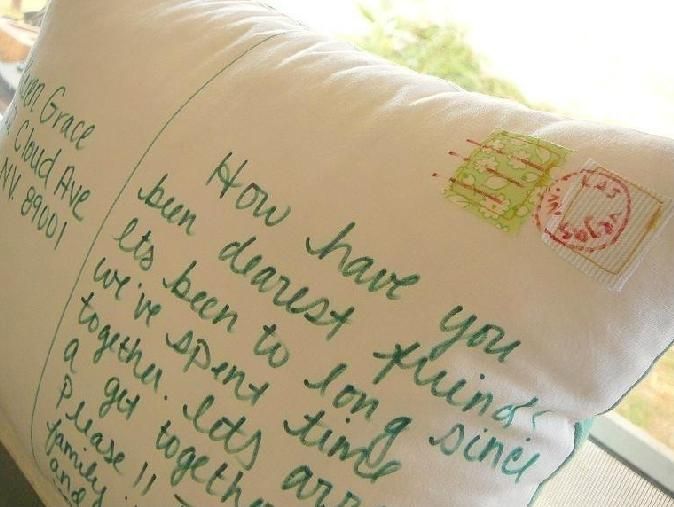 Grace
Cloud Ave
NV. 89001
How have you
been dearest friend
Its been to long since
we've spent time
together. lets
a get together
Please !!
family
and
LAS